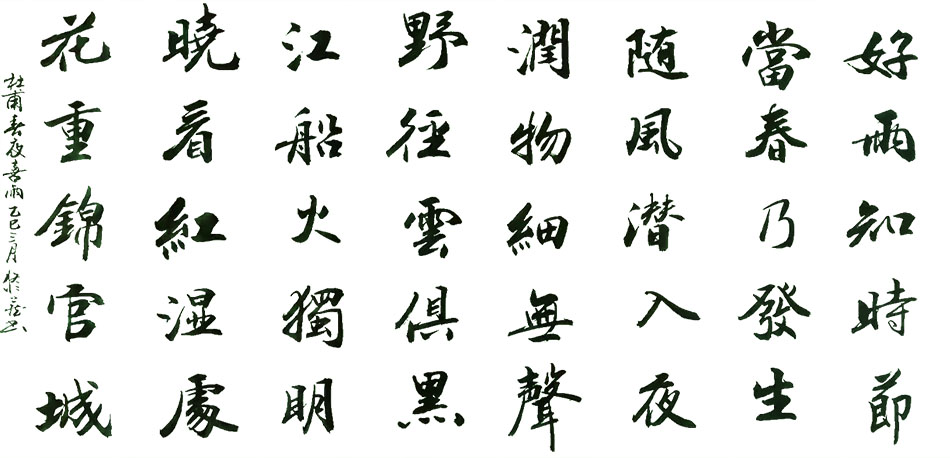 好雨知時節
當春乃發生
随風潜入夜
潤物細無聲
野徑雲俱黑
江船火獨明
曉看紅湿處
花重錦官城
杜甫春夜喜雨乙巳三月